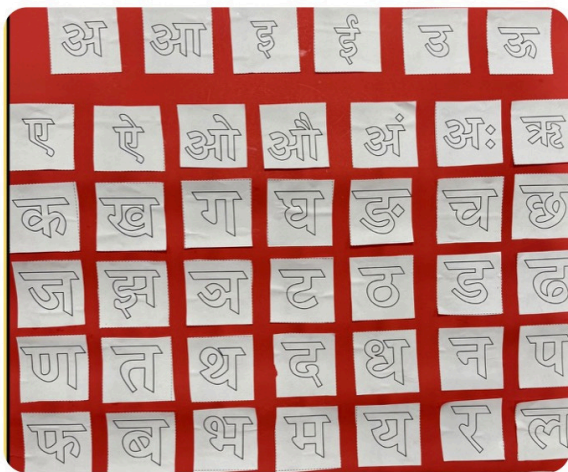 अ आ इ ई उ ऊ
ए ऐ ओ औ अं अः ऋ
क ख ग घ ङ च छ
ज झ ञ ट ठ ड ढ
ण त थ द ध न प
फ ब भ म य र ल